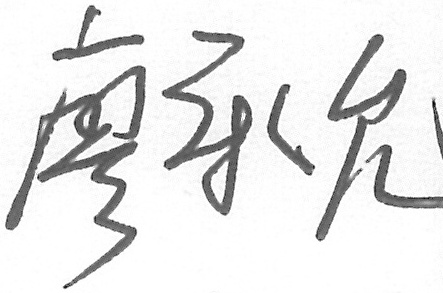 廖承允